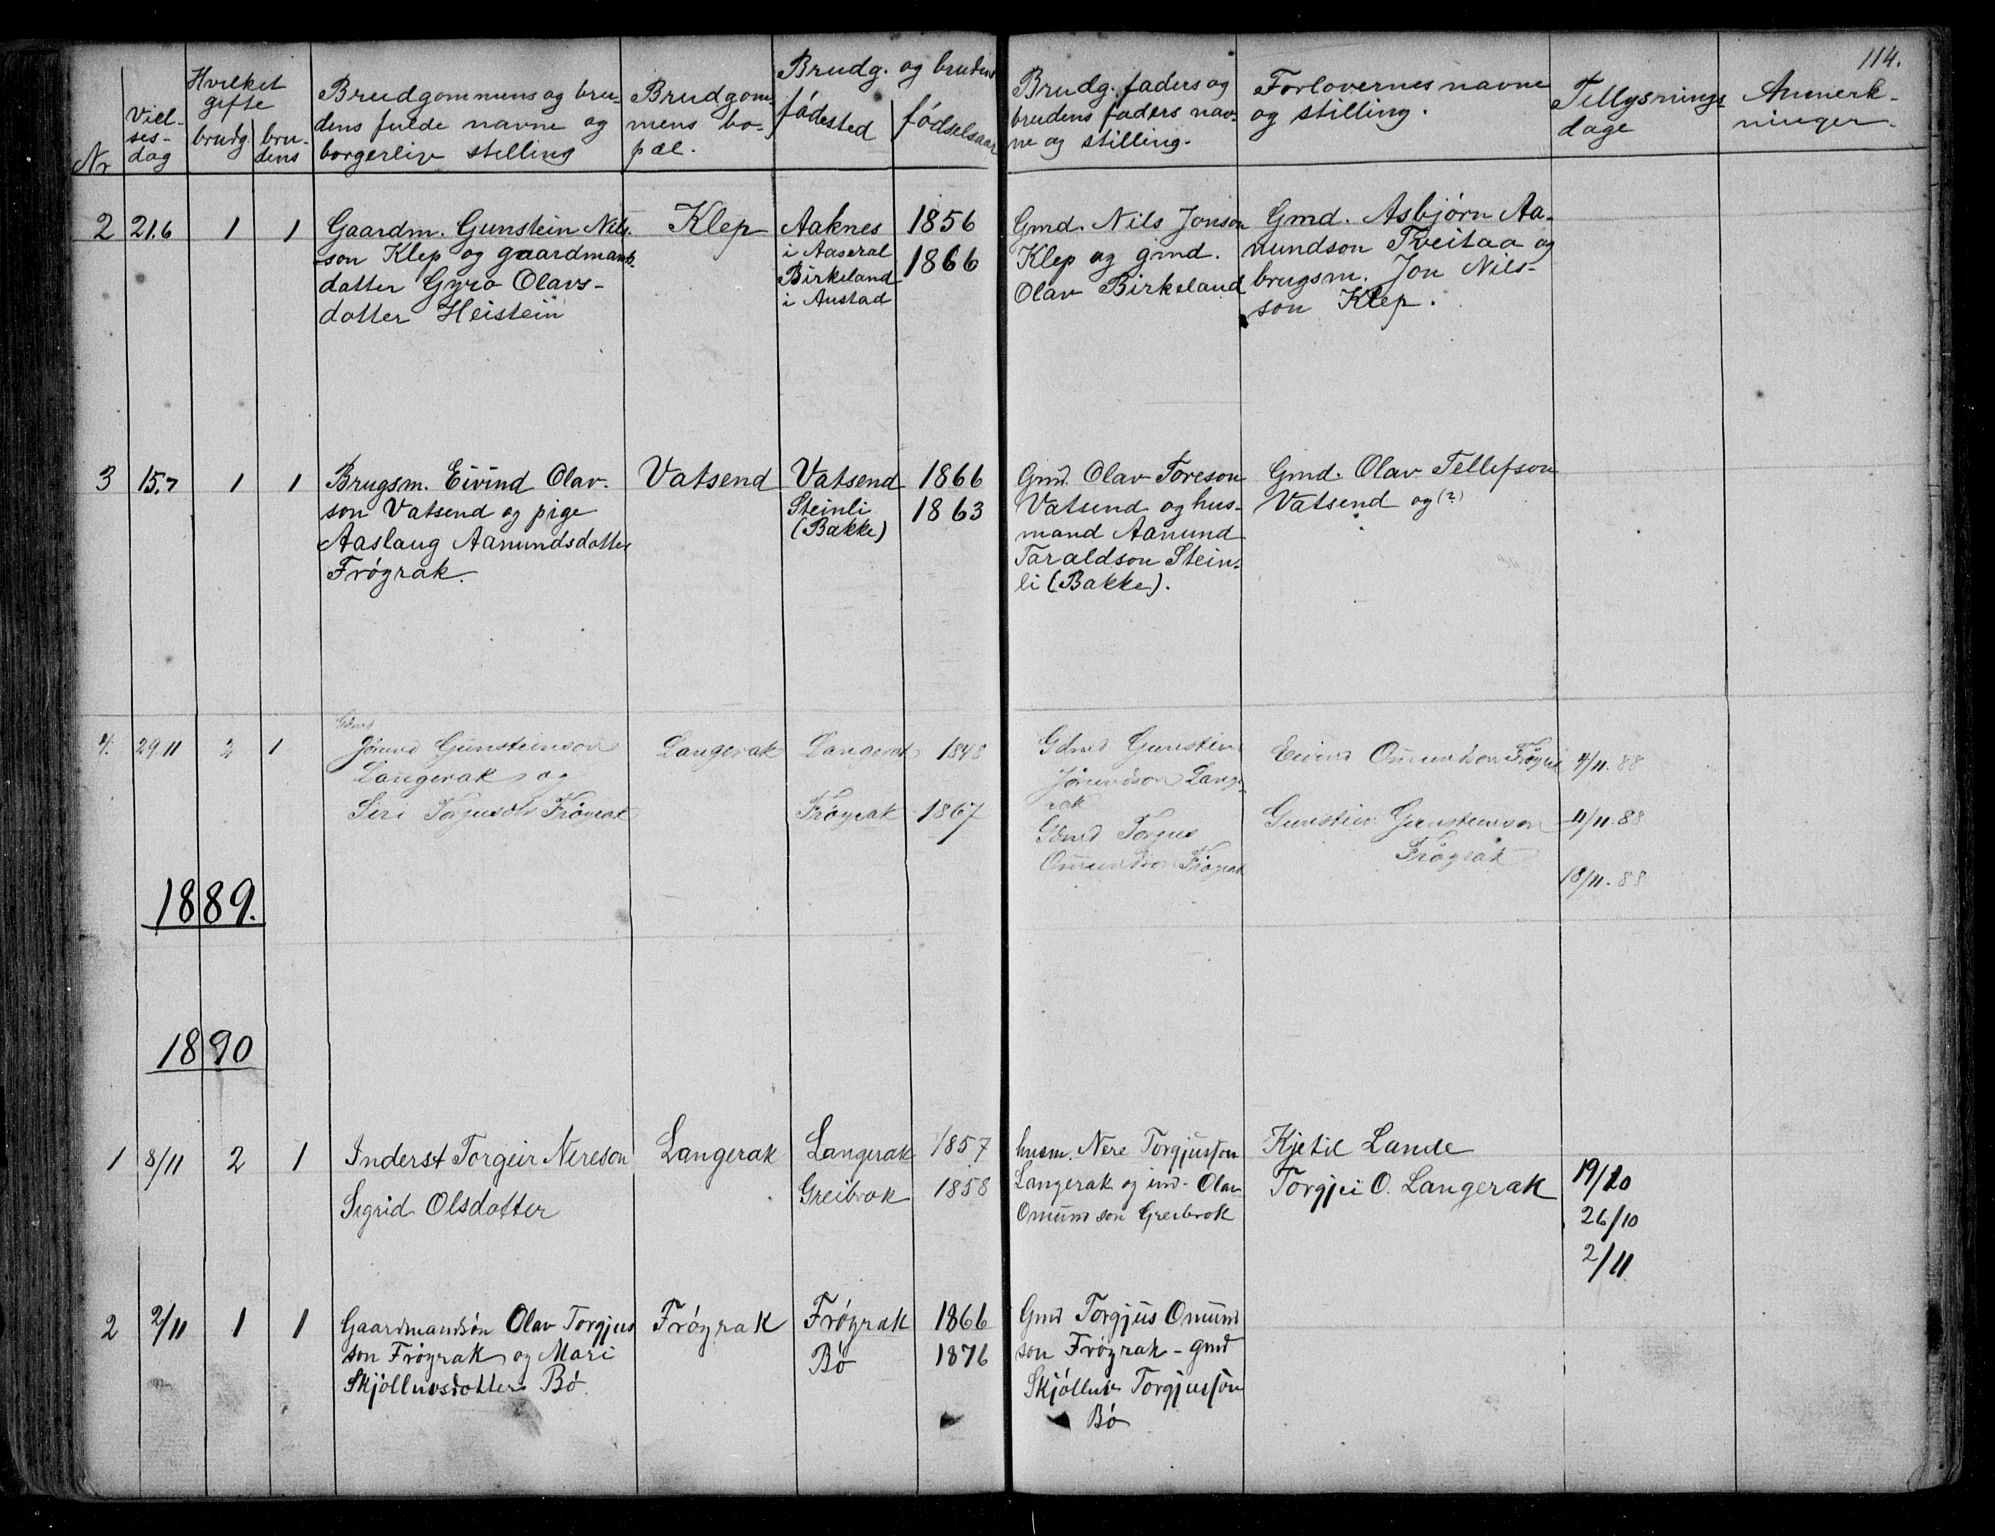 114.
Nr
Viel-
ses-
dag
Hvilket
gifte
brudg. bru-
dens
Brudgommens og bru-
dens fulde navne og
borgerlige stilling
Brudgom-
mens bo-
pæl.
Brudg. og brudens
fødested fødselsaar
Brudg. faders og
brudens faders nav-
ne og stilling.
Forlovernes navne
og stilling.
Tillysnings
dage
Anmerk-
ninger.
2 21.6 1 1
Gaardm. Gunstein Nils-
son Klep og gaardmands-
datter Gyro Olavs-
datter Heistein
Klep
Aaknes
i Aaseral
Birkeland
i Austad
1856
1866
Gmd. Nils Jonson
Klep og gmd.
Olav Birkeland
Gmd. Asbjørn Aa-
nundson Tveitaa og
brugsm. Jon Nils-
son Klep.
3 15.7 1 1
Brugsm. Eivind Olav-
son Vatsend og pige
Aaslaug Aanundsdatter
Frøyrak.
Vatsend
Vatsend
Steinli
(Bakke)
1866
1863
Gmd. Olav Toreson
Vatsend og hus-
mand Aanund
Taraldson Stein-
li (Bakke).
Gmd. Olav Tellefson
Vatsend og (?)
4. 29.11 2 1
Gdmd
Jørund Gunsteinson
Langerak og
Siri Torjusdtr Frøyrak
Langerak
Langerak
Frøyrak
1848
1867
Gdmd Gunstein
Jørundson Lange-
rak
Gdmd Torgus
Omundson Frøyrak
Eivind Omundson Frøyrak
Gunstein Gunsteinson
Frøyrak
4/11. 88
11/11. 88
18/11. 88
1889.
1890
1 8/11 2 1
Inderst Torgeir Nereson
Sigrid Olsdatter
Langerak
Langerak
Greibrok
1857
1858
husm. Nere Torgjusson
Langerak og ind. Olav
Omundson Greibrok
Kjetil Lande
Torgjei O. Langerak
19/10
26/10
2/11
2 2/11 1 1
Gaardmandsøn Olav Torgjus
son Frøyrak og Mari
Skjølluvsdatter Bø.
Frøyrak
Frøyrak
Bø
1866
1876
Gmd Torgjus Omund
son Frøyrak - gmd
Skjølluv Torgjusson
Bø